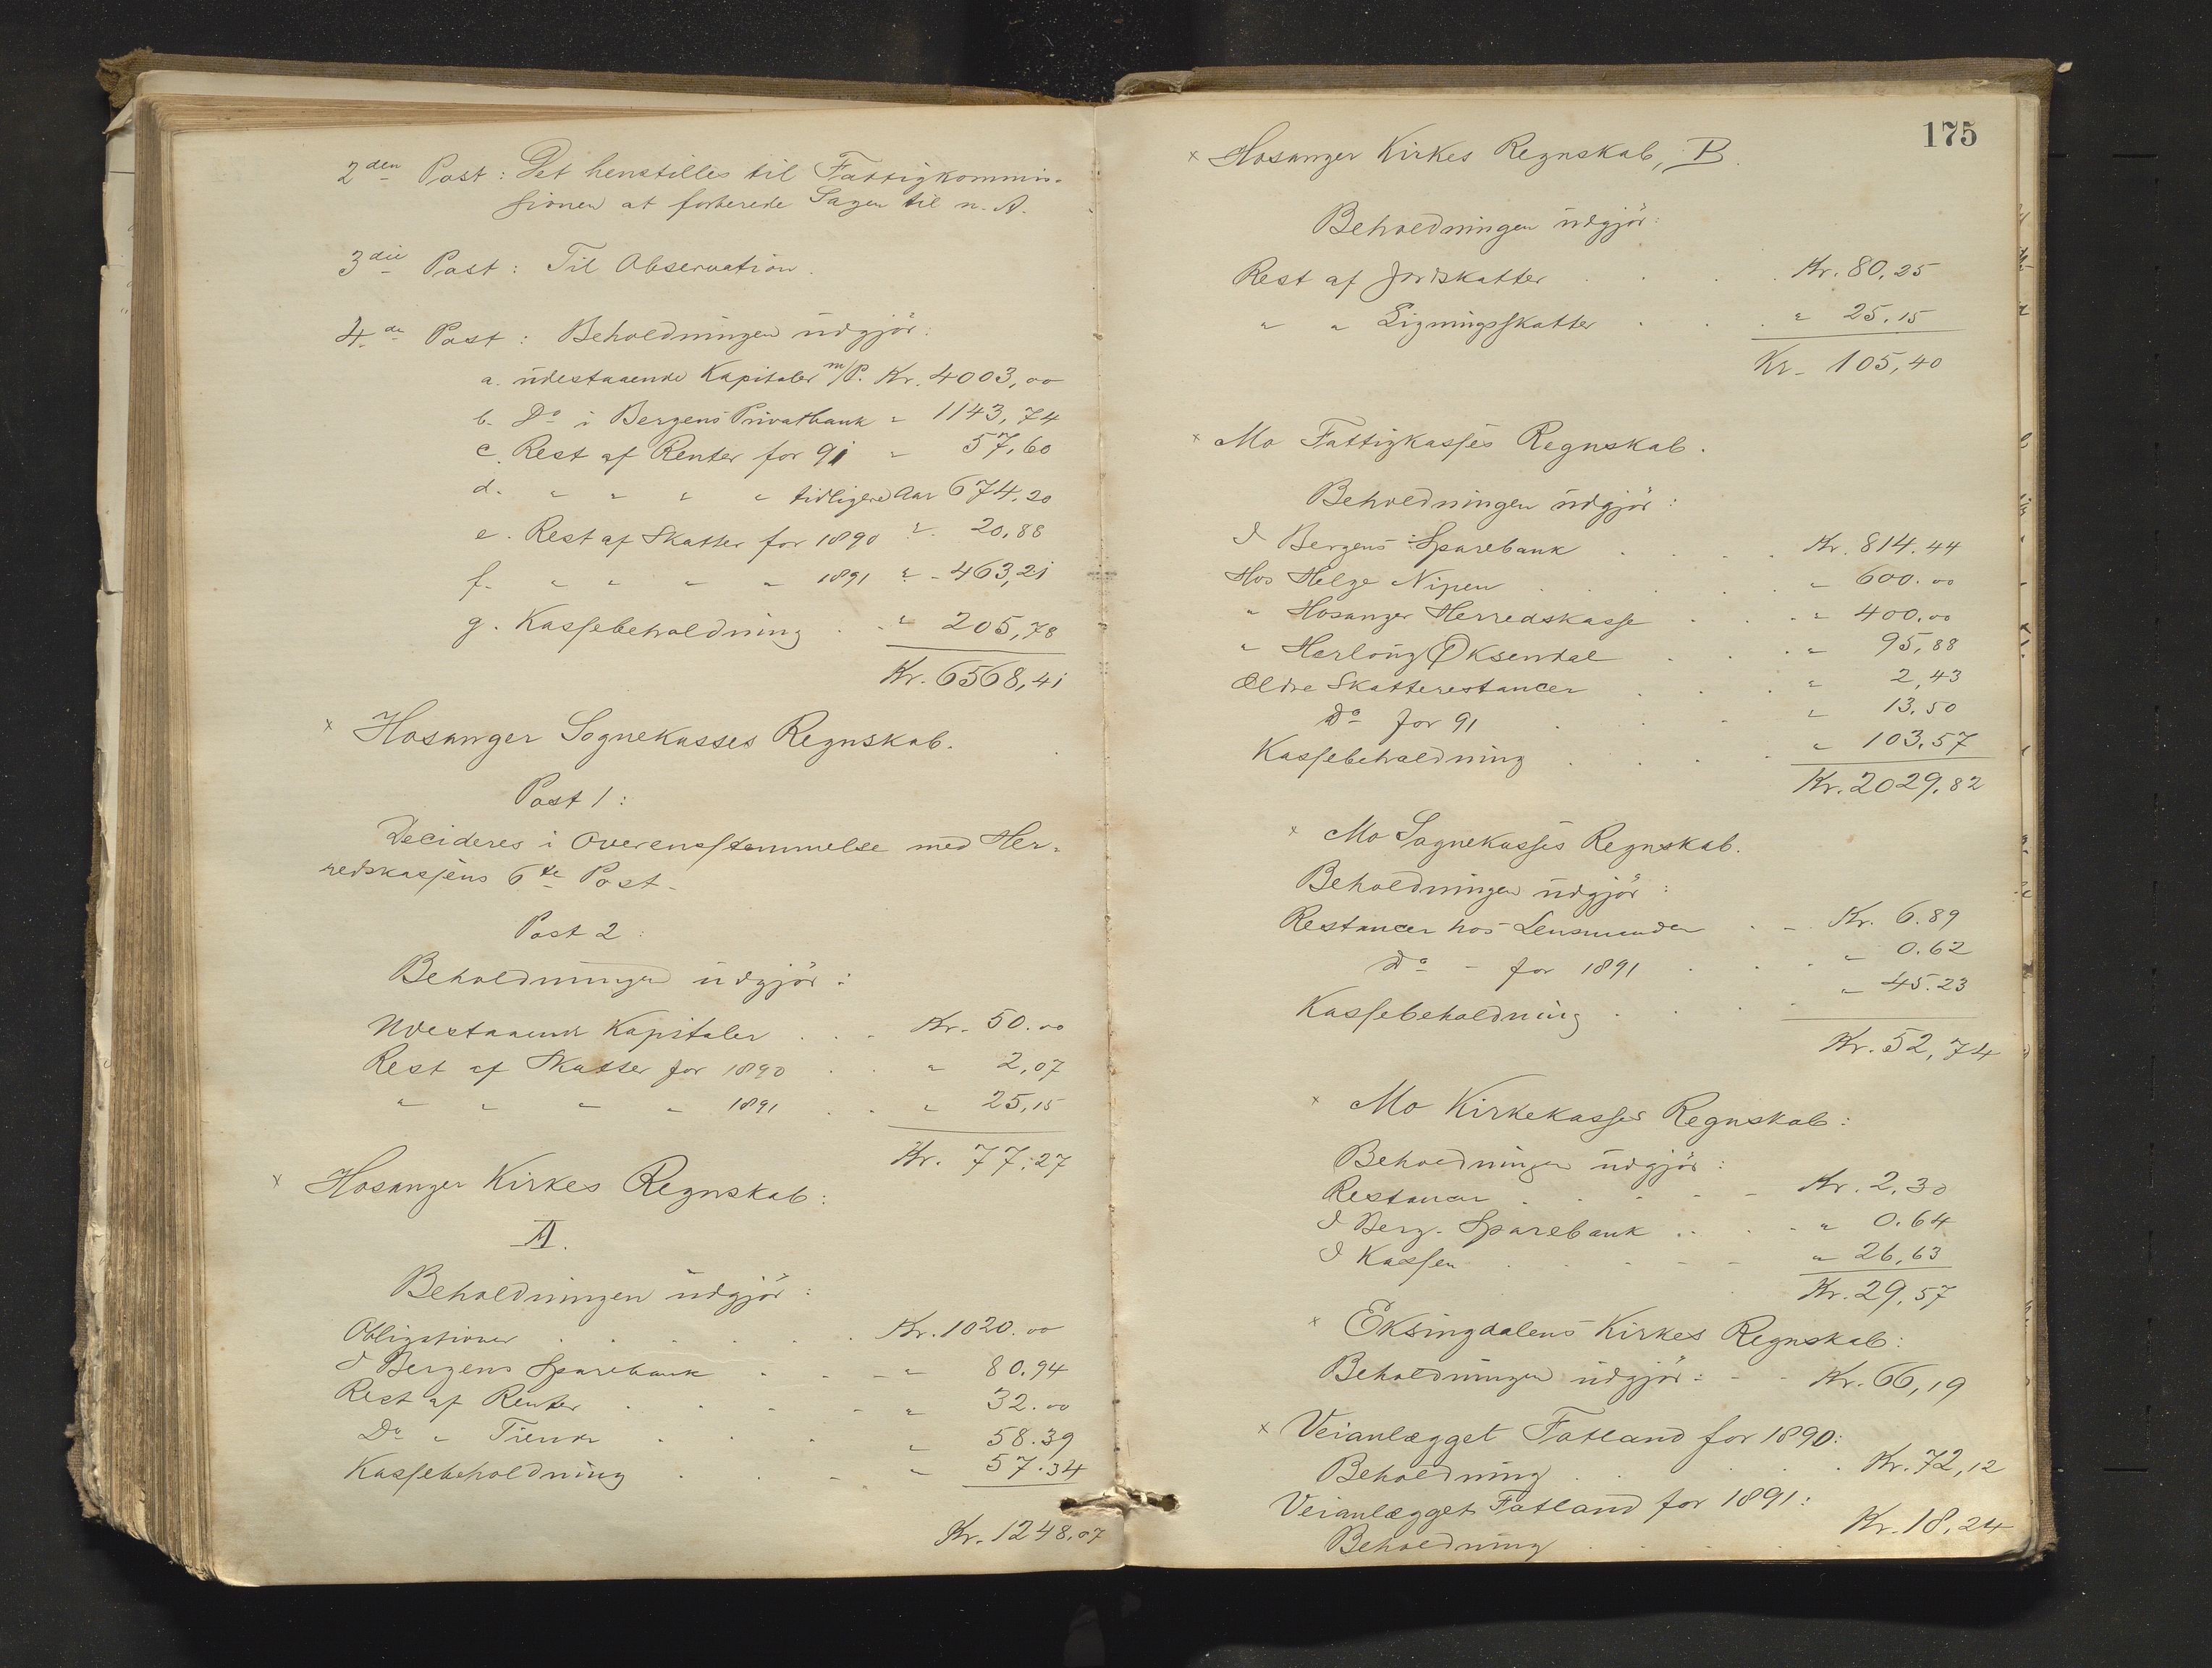 2den Post: Det henstilles til Fattigkommis-
sionen at forberede Sagen til n. A.
3die Post: Til Observation.
4de Post: Beholdningen udgjør:
a. udestaaende Kapitaler m/P. Kr. 4003,00
b. Do i Bergens Privatbank " 1143,74
c. Rest af Renter for 91 " 57,60
d. " " " " tidligere Aar 674.20
e. Rest af Skatter for 1890 " 20,88
f. " " " " 1891 " 463,21
g. Kassebeholdning . . " 205,78
Kr. 6568,41
x Hosanger Sognekasses Regnskab.
Post 1:
Decideres i Overensstemmelse med Her-
redskassens 6te Post.
Post 2:
Beholdningen udgjør:
Udestaaende Kapitaler . . . Kr. 50.00
Rest af Skatter for 1890 . . " 2,07
" " " " 1891 . . " 25,15
Kr. 77,27
x Hosanger Kirkes Regnskab:
A.
Beholdningen udgjør:
Obligationer . . . . . . Kr. 1020.00
I Bergens Sparebank . . . " 80.94
Rest af Renter . . . . " 32.00
Do " Tiende . . . " 58.39
Kassebeholdning . . . " 57.34
Kr. 1248,07
175
x Hosanger Kirkes Regnskab, B.
Beholdningen udgjør:
Rest af Jordskatter . . . Kr. 80,25
" " Ligningsskatter . . . " 25,15
Kr. 105,40
x Mo Fattigkasses Regnskab.
Beholdningen udgjør:
I Bergens Sparebank . . . . Kr. 814.44
Hos Helge Nipen . . . . . " 600.00
" Hosanger Herredskasse . . . " 400.00
" Herloug Øksendal . . . " 95,88
Ældre Skatterestancer . . . " 2,43
Do for 91 . . . " 13,50
Kassebeholdning . . . . " 103,57
Kr. 2029,82
x Mo Sognekasses Regnskab.
Beholdningen udgjør:
Restancer hos Lensmanden . . Kr. 6.89
Do - for 1891 . . . " 0.62
Kassebeholdning . . . . " 45.23
Kr. 52,74
x Mo Kirkekasses Regnskab:
Beholdningen udgjør:
Restancer . . . . . Kr. 2,30
I Berg. Sparebank . . . . " 0.64
I Kassen . . . . . " 26,63
Kr. 29,57
x Eksingdalens Kirkes Regnskab:
Beholdningen udgjør: - - Kr. 66,19
x Veianlægget Fatland for 1890:
Beholdning . . . . . Kr. 72,12
Veianlægget Fatland for 1891:
Beholdning . . . . . Kr. 18,24